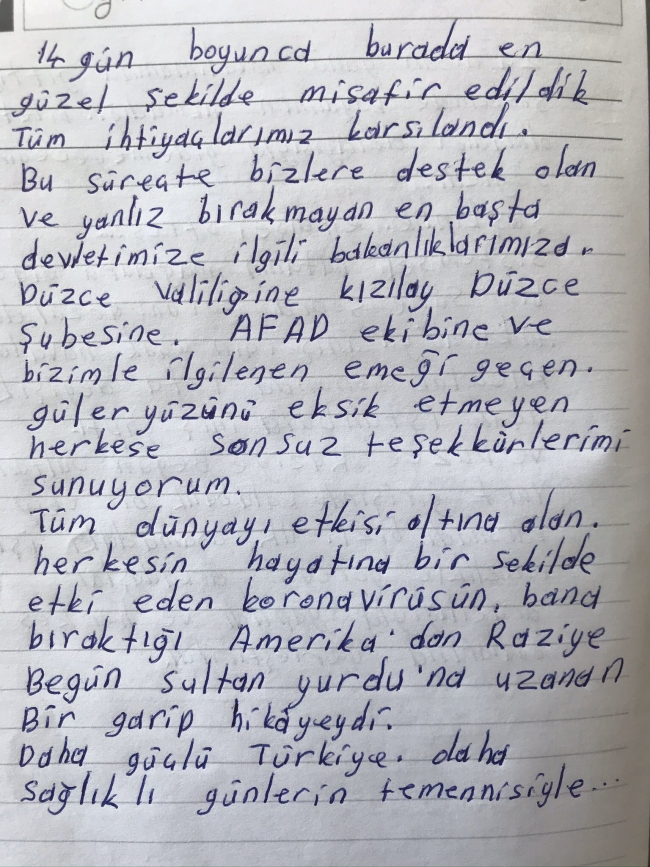 14 gün boyunca burada en
güzel şekilde misafir edildik
Tüm ihtiyaçlarımız karsılandı.
Bu süreçte bizlere destek olan
ve yanlız bırakmayan en başta
devletimize ilgili bakanlıklarımıza.
Düzce Valiliğine kızılay Düzce
Şubesine. AFAD ekibine ve
bizimle ilgilenen emeği geçen.
güler yüzünü eksik etmeyen
herkese sonsuz teşekkürlerimi
sunuyorum.
Tüm dünyayı etkisi altına alan.
herkesin hayatına bir sekilde
etki eden koronavirüsün, bana
bıraktığı Amerika'dan Raziye
Begün Sultan yurdu'na uzanan
Bir garip hikâyeydi.
Daha güçlü Türkiye. daha
sağlıklı günlerin temennisiyle...